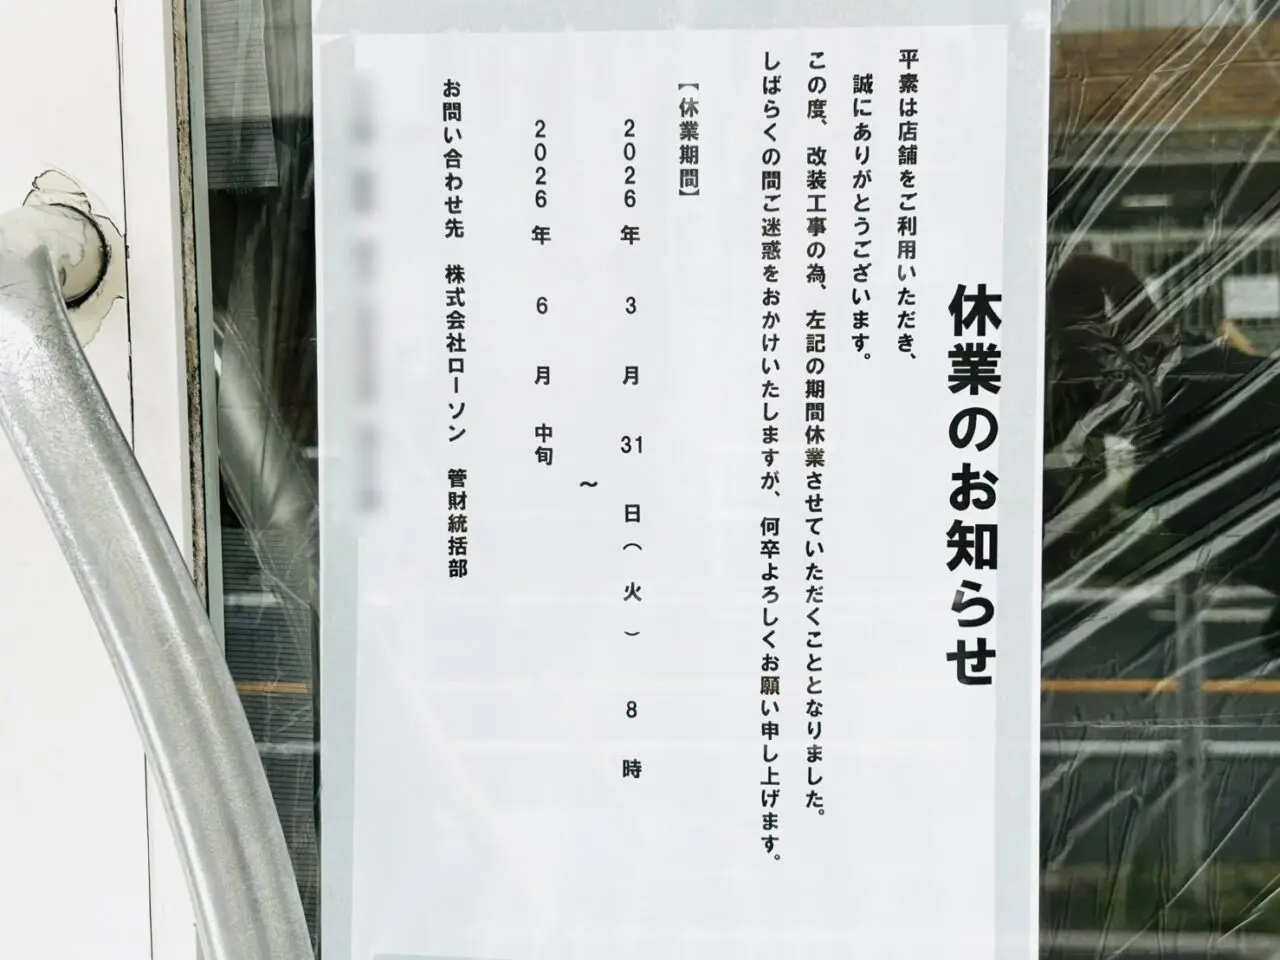 休業のお知らせ
平素は店舗をご利用いただき、
誠にありがとうございます。
この度、改装工事の為、左記の期間休業させていただくこととなりました。
しばらくの間ご迷惑をおかけいたしますが、何卒よろしくお願い申し上げます。
【休業期間】
2026年 3月 31日(火) 8時
~
2026年 6月 中旬
お問い合わせ先 株式会社ローソン 管財統括部